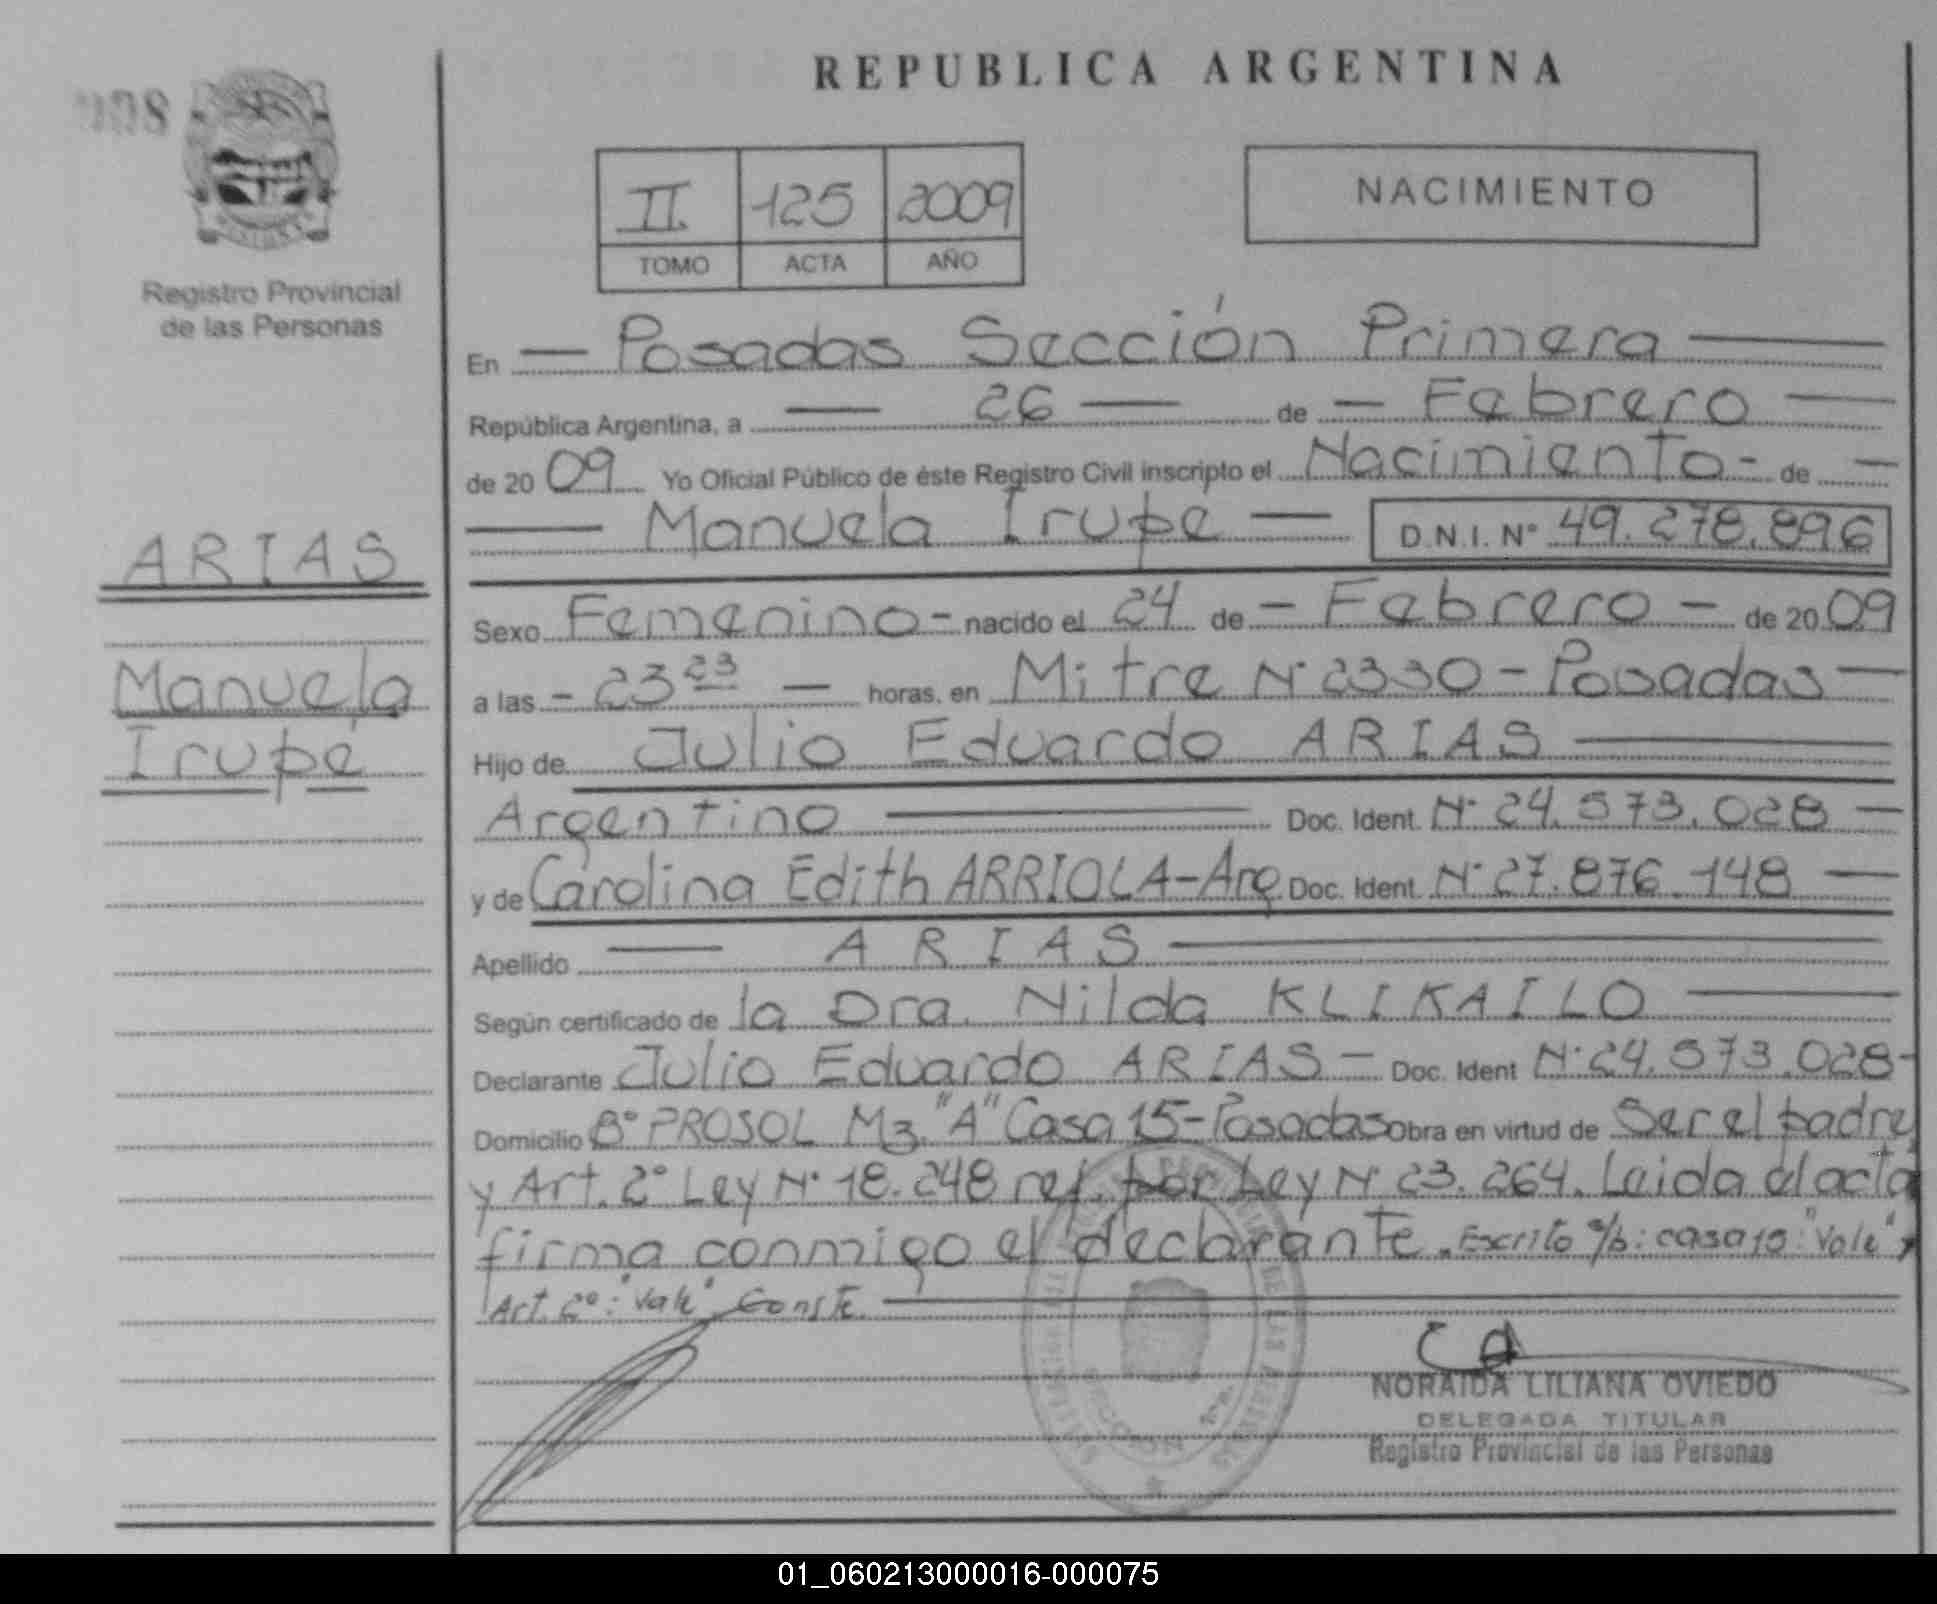 REPUBLICA ARGENTINA
008
II 125 2009
TOMO ACTA AÑO
NACIMIENTO
Registro Provincial
de las Personas
En — Posadas Sección Primera —
República Argentina, a — 26 — de — Febrero —
de 20 09 Yo Oficial Público de éste Registro Civil inscripto el Nacimiento - de —
— Manuela Irupe — D.N.I. Nº 49.278.896
ARIAS
Manuela
Irupé
Sexo Femenino - nacido el 24 de — Febrero — de 20 09
a las - 23 23 — horas, en Mitre Nº 2330 - Posadas —
Hijo de Julio Eduardo ARIAS —
Argentino — Doc. Ident. Nº 24.573.028 —
y de Carolina Edith ARRIOLA - Arg. Doc. Ident. Nº 27.876.148 —
Apellido — ARIAS —
Según certificado de la Dra. Nilda KLIKAILO —
Declarante Julio Eduardo ARIAS — Doc. Ident Nº 24.573.028 -
Domicilio Bº PROSOL Mz. "A" Casa 15 - Posadas Obra en virtud de Ser el padre
y Art. 2º Ley Nº 18.248 ref. por Ley Nº 23.264. Leida el acta
firma conmigo el declarante. Escrito s/b: casa 15: "Vale",
Art. 2º: "Vale" Conste. —
NORAIDA LILIANA OVIEDO
DELEGADA TITULAR
Registro Provincial de las Personas
01_060213000016-000075